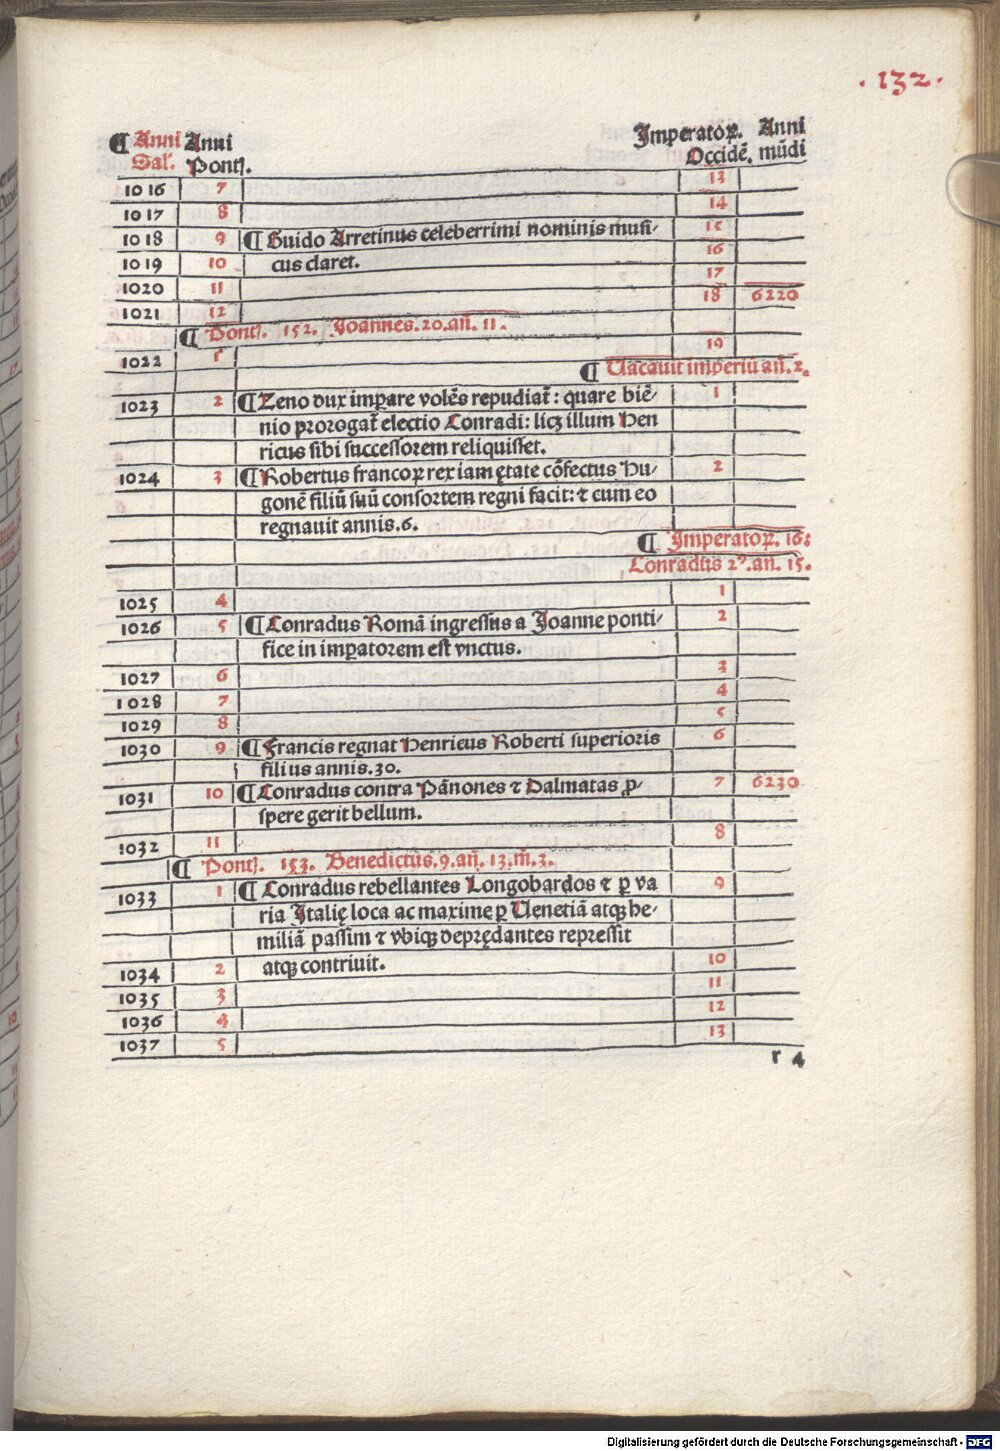 .132.
¶ Anni Anni Imperatoꝝ. Anni
Sal'. Pont̃. Occidẽ. mũdi
1016 7 13
1017 8 14
1018 9 ¶ Guido Arretinus celeberrimi nominis musi- 15
1019 10 cus claret. 16
1020 11 17
1021 12 18 6220
¶ Pont̃. 152. Joannes. 20. añ. 11.
1022 1 19
¶ Uacauit imperiũ añ. 2.
1023 2 ¶ Zeno dux imꝑare volẽs repudiat̃: quare biẽ- 1
nio prorogat̃ electio Conradi: licꝫ illum Hen
ricus sibi successorem reliquisset.
1024 3 ¶ Robertus francoꝝ rex iam ętate cõfectus Hu- 2
gonẽ filiũ suũ consortem regni facit: ⁊ cum eo
regnauit annis. 6.
¶ Imperatoꝝ. 16:
Conradus 2ꝰ. an. 15.
1025 4 1
1026 5 ¶ Conradus Romã ingressus a Joanne ponti- 2
fice in imꝑatorem est vnctus.
1027 6 3
1028 7 4
1029 8 5
1030 9 ¶ Francis regnat Henricus Roberti superioris 6
filius annis. 30.
1031 10 ¶ Conradus contra Pãnones ⁊ Dalmatas ꝓ- 7 6230
spere gerit bellum.
1032 11 8
¶ Pont̃. 153. Benedictus. 9. añ. 13. m̃. 3.
1033 1 ¶ Conradus rebellantes Longobardos ⁊ ꝑ va 9
ria Italię loca ac maxime ꝑ Uenetiã atqꝫ he-
miliã passim ⁊ vbiqꝫ deprędantes repressit
1034 2 atqꝫ contriuit. 10
1035 3 11
1036 4 12
1037 5 13
r 4
Digitalisierung gefördert durch die Deutsche Forschungsgemeinschaft - DFG